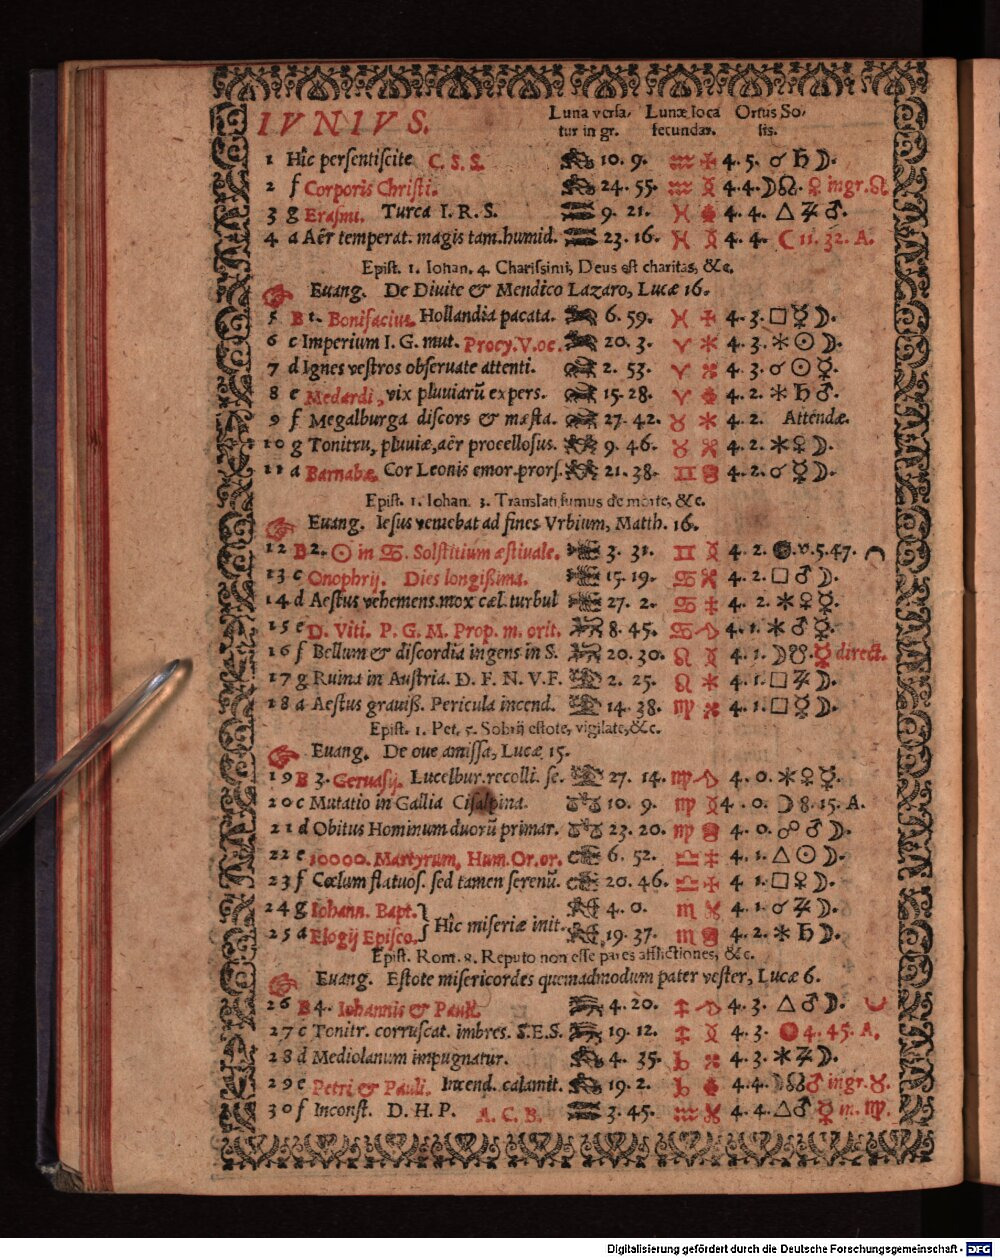 IVNIVS. Luna versa- Lunæ loca Ortus So-
tur in gr. secundar. lis.
1 Hîc persentiscite C. S. S. 10. 9. ♒ 4. 5. ☌ ♄ ☽.
2 f Corporis Christi. 24. 55. ♒ 4. 4. ☽ ☊. ♀ ingr. ♌
3 g Erasmi. Turca I. R. S. 9. 21. ♓ 4. 4. △ ♃ ♂.
4 a Aër temperat. magis tam. humid. 23. 16. ♓ 4. 4. ☾ 11. 32. A.
Epist. 1. Iohan. 4. Charissimi, Deus est charitas, &c.
Euang. De Diuite & Mendico Lazaro, Lucæ 16.
5 B 1. Bonifacius. Hollandia pacata. 6. 59. ♓ 4. 3. □ ☿ ☽.
6 c Imperium I. G. mut. Procy. V. oc. 20. 3. ♈ 4. 3. ⚹ ☉ ☽.
7 d Ignes vestros obseruate attenti. 2. 53. ♈ 4. 3. ☌ ☉ ☿.
8 e Medardi, vix pluuiarũ expers. 15. 28. ♈ 4. 2. ⚹ ♄ ♂.
9 f Megalburga discors & mæsta. 27. 42. ♉ 4. 2. Attendæ.
10 g Tonitru, pluuiæ, aër procellosus. 9. 46. ♉ 4. 2. ⚹ ♀ ☽.
11 a Barnabæ. Cor Leonis emor. prors. 21. 38. ♊ 4. 2. ☌ ☿ ☽.
Epist. 1. Iohan. 3. Translati sumus de morte, &c.
Euang. Iesus veniebat ad fines Vrbium, Matth. 16.
12 B 2. ☉ in ♋. Solstitium æstiuale. 3. 31. ♊ 4. 2. v. 5. 47.
13 c Onophrij. Dies longißima. 15. 19. ♋ 4. 2. □ ♂ ☽.
14 d Aestus vehemens. mox cæl. turbul 27. 2. ♋ 4. 2. ⚹ ♀ ☿.
15 e D. Viti. P. G. M. Prop. m. orit. 8. 45. ♋ 4. 1. ⚹ ♂ ☿.
16 f Bellum & discordia ingens in S. 20. 30. ♌ 4. 1. ☽ ☋. ☿ direct.
17 g Ruina in Austria. D. F. N. V. F. 2. 25. ♌ 4. 1. □ ♃ ☽.
18 a Aestus grauiß. Pericula incend. 14. 38. ♍ 4. 1. □ ☿ ☽.
Epist. 1. Pet. 5. Sobrij estote, vigilate, &c.
Euang. De oue amissa, Lucæ 15.
19 B 3. Geruasij. Lucelbur. recolli. se. 27. 14. ♍ 4. 0. ⚹ ♀ ☿.
20 c Mutatio in Gallia Cisalpina. 10. 9. ♍ 4. 0. ☽ 8. 15. A.
21 d Obitus Hominum duorũ primar. 23. 20. ♍ 4. 0. ☍ ♂ ☽.
22 e 10000. Martyrum, Hum. Or. or. 6. 52. ♎ 4. 1. △ ☉ ☽.
23 f Cœlum flatuos. sed tamen serenũ. 20. 46. ♎ 4. 1. □ ♀ ☽.
24 g Iohann. Bapt. 4. 0. ♏ 4. 1. ☌ ♃ ☽.
Hîc miseriæ init.
25 a Elogij Episco. 19. 37. ♏ 4. 2. ⚹ ♄ ☽.
Epist. Rom. 8. Reputo non esse pares afflictiones, &c.
Euang. Estote misericordes quemadmodum pater vester, Lucæ 6.
26 B 4. Iohannis & Pauli. 4. 20. ♐ 4. 3. △ ♂ ☽.
27 c Tonitr. corruscat. imbres. S. E. S. 19. 12. ♐ 4. 3. 4. 45. A.
28 d Mediolanum impugnatur. 4. 35. ♑ 4. 3. ⚹ ♃ ☽.
29 e Petri & Pauli. Incend. calamit. 19. 2. ♑ 4. 4. ☽ ☊ ♂ ingr. ♉.
30 f Inconst. D. H. P. A. C. B. 3. 45. ♒ 4. 4. △ ♂ ☿ in. ♍.
Digitalisierung gefördert durch die Deutsche Forschungsgemeinschaft - DFG